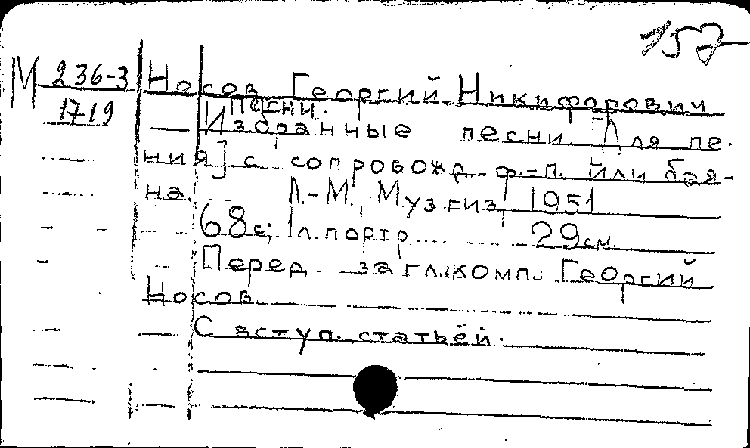 157
М 236-3
1719
Носов, Георгий Никифорович
Песни.
Избранные песни [Для пе-
ния] с сопровожд. ф.-п. или бая-
на. Л.-М. Музгиз, 1951
68 с; 1 л. портр. 29 см
Перед загл. комп. Георгий
Носов.
С вступ. статьёй.